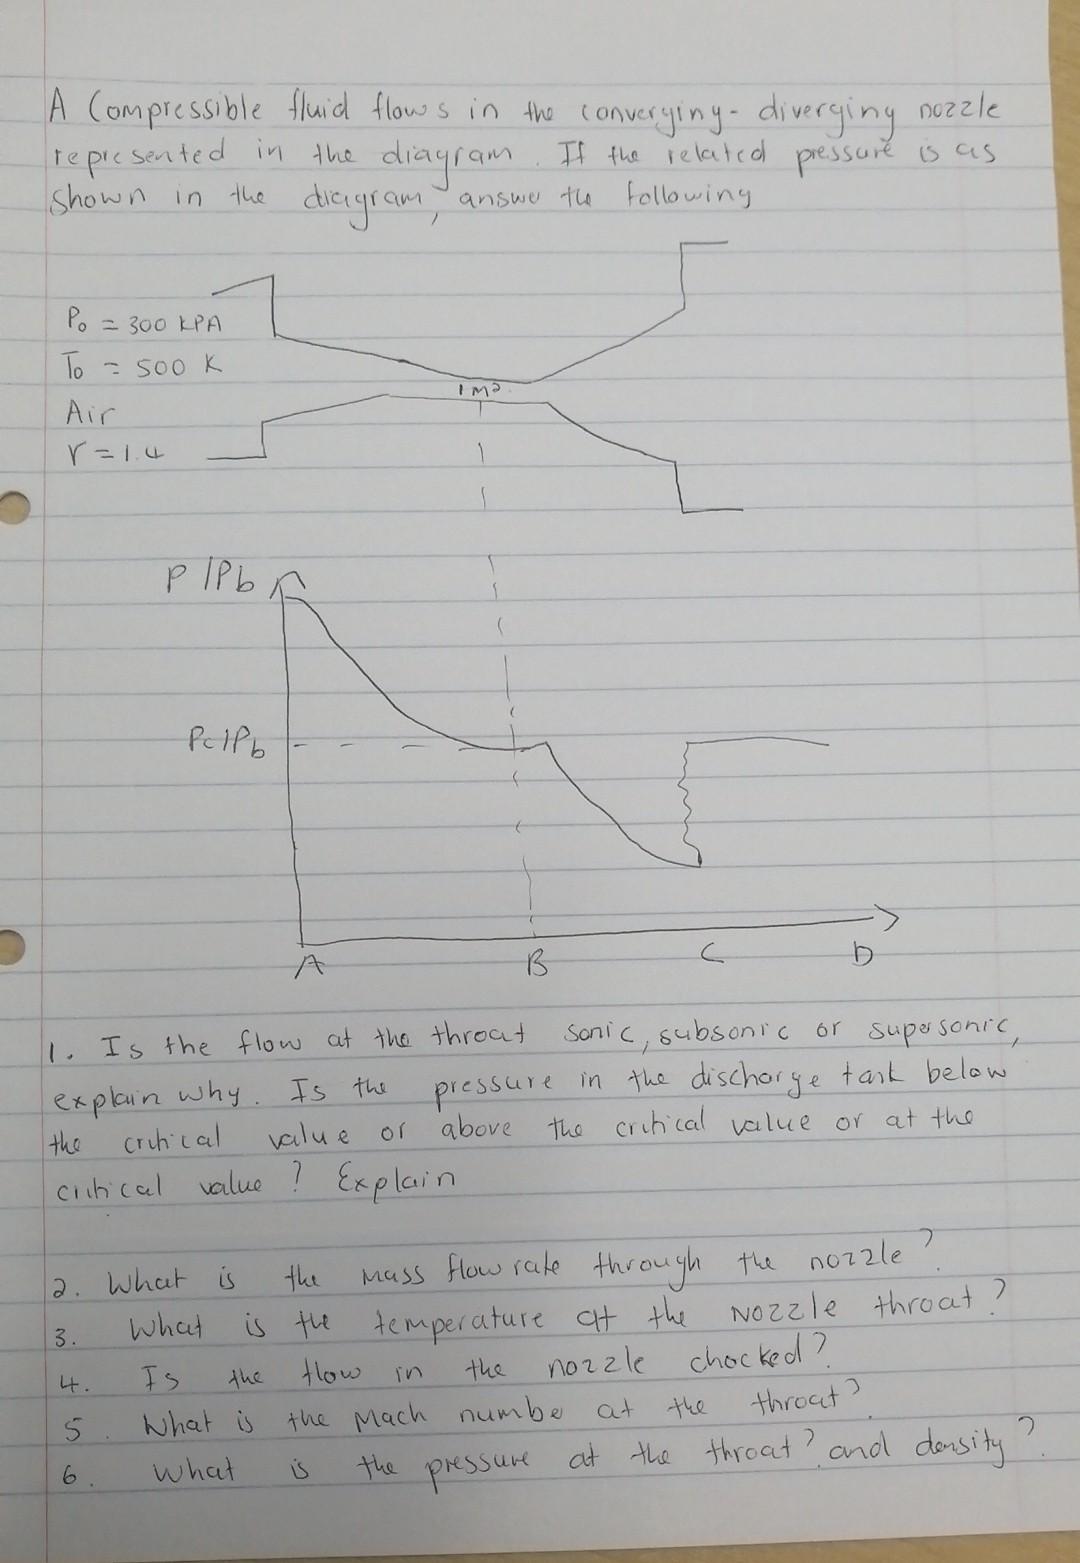 A Compressible fluid flows in the converging-diverging nozzle
represented in the diagram. If the related pressure is as
shown in the diagram, answe the following
P₀ = 300 KPA
T₀ = 500 K
Air
r = 1.4
1 M²
P/Pb
Pc/Pb
A B C D
1. Is the flow at the throat sonic, subsonic or supersonic,
explain why. Is the pressure in the discharge tank below
the critical value or above the critical value or at the
critical value? Explain
2. What is the mass flow rate through the nozzle?
3. What is the temperature at the Nozzle throat?
4. Is the flow in the nozzle chocked?
5. What is the Mach numbe at the throat?
6. What is the pressure at the throat? and density?